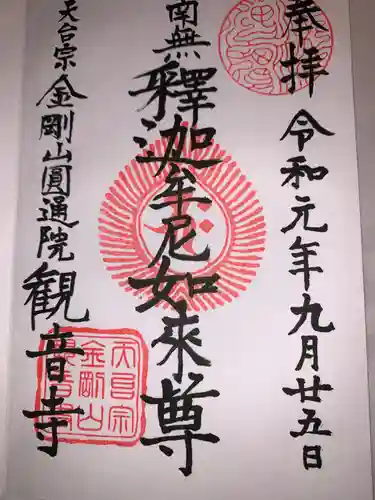 奉拝
令和元年九月廿五日
南無
釋迦牟尼如来尊
天台宗
金剛山圓通院
観音寺
天台宗
金剛山
観音寺